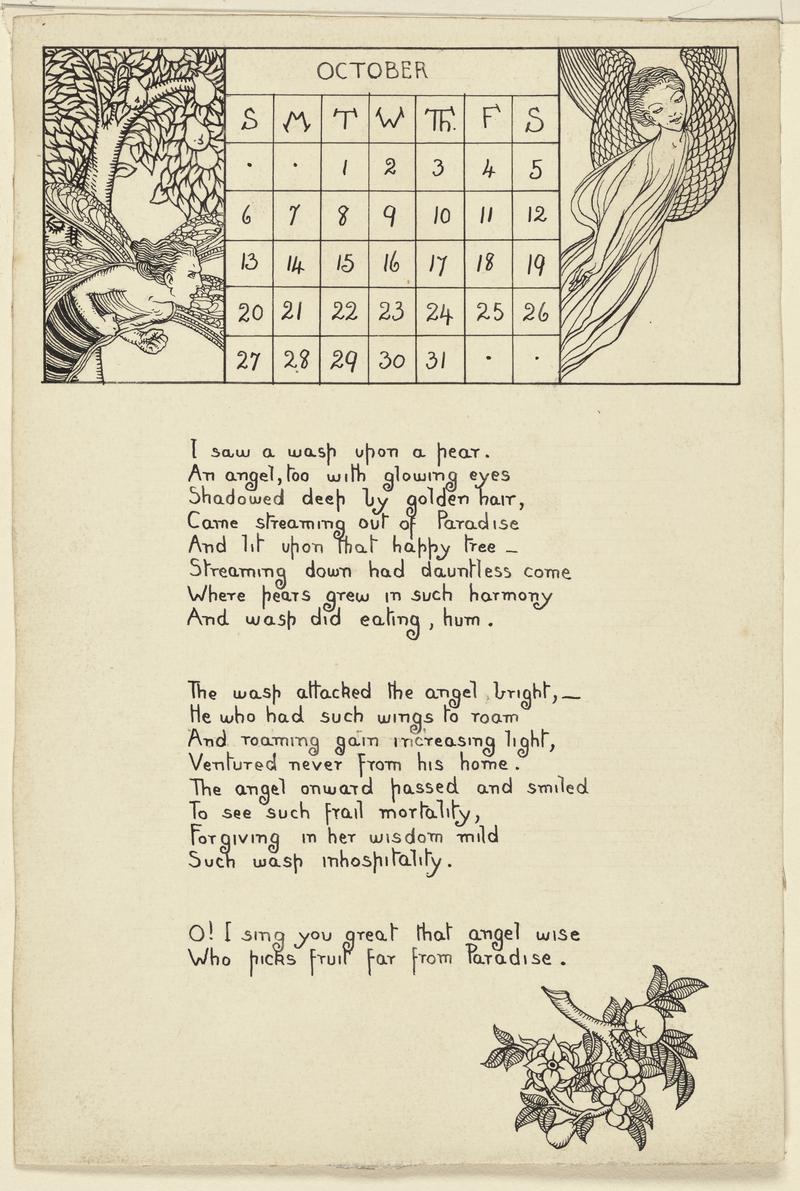 OCTOBER
S M T W Th. F S
· · 1 2 3 4 5
6 7 8 9 10 11 12
13 14 15 16 17 18 19
20 21 22 23 24 25 26
27 28 29 30 31 · ·
I saw a wasp upon a pear.
An angel, too with glowing eyes
Shadowed deep by golden hair,
Came streaming out of Paradise
And lit upon that happy tree –
Streaming down had dauntless come
Where pears grew in such harmony
And wasp did eating, hum.
The wasp attacked the angel bright, –
He who had such wings to roam
And roaming gain increasing light,
Ventured never from his home.
The angel onward passed and smiled
To see such frail mortality,
Forgiving in her wisdom mild
Such wasp inhospitality.
O! I sing you great that angel wise
Who picks fruit far from Paradise.